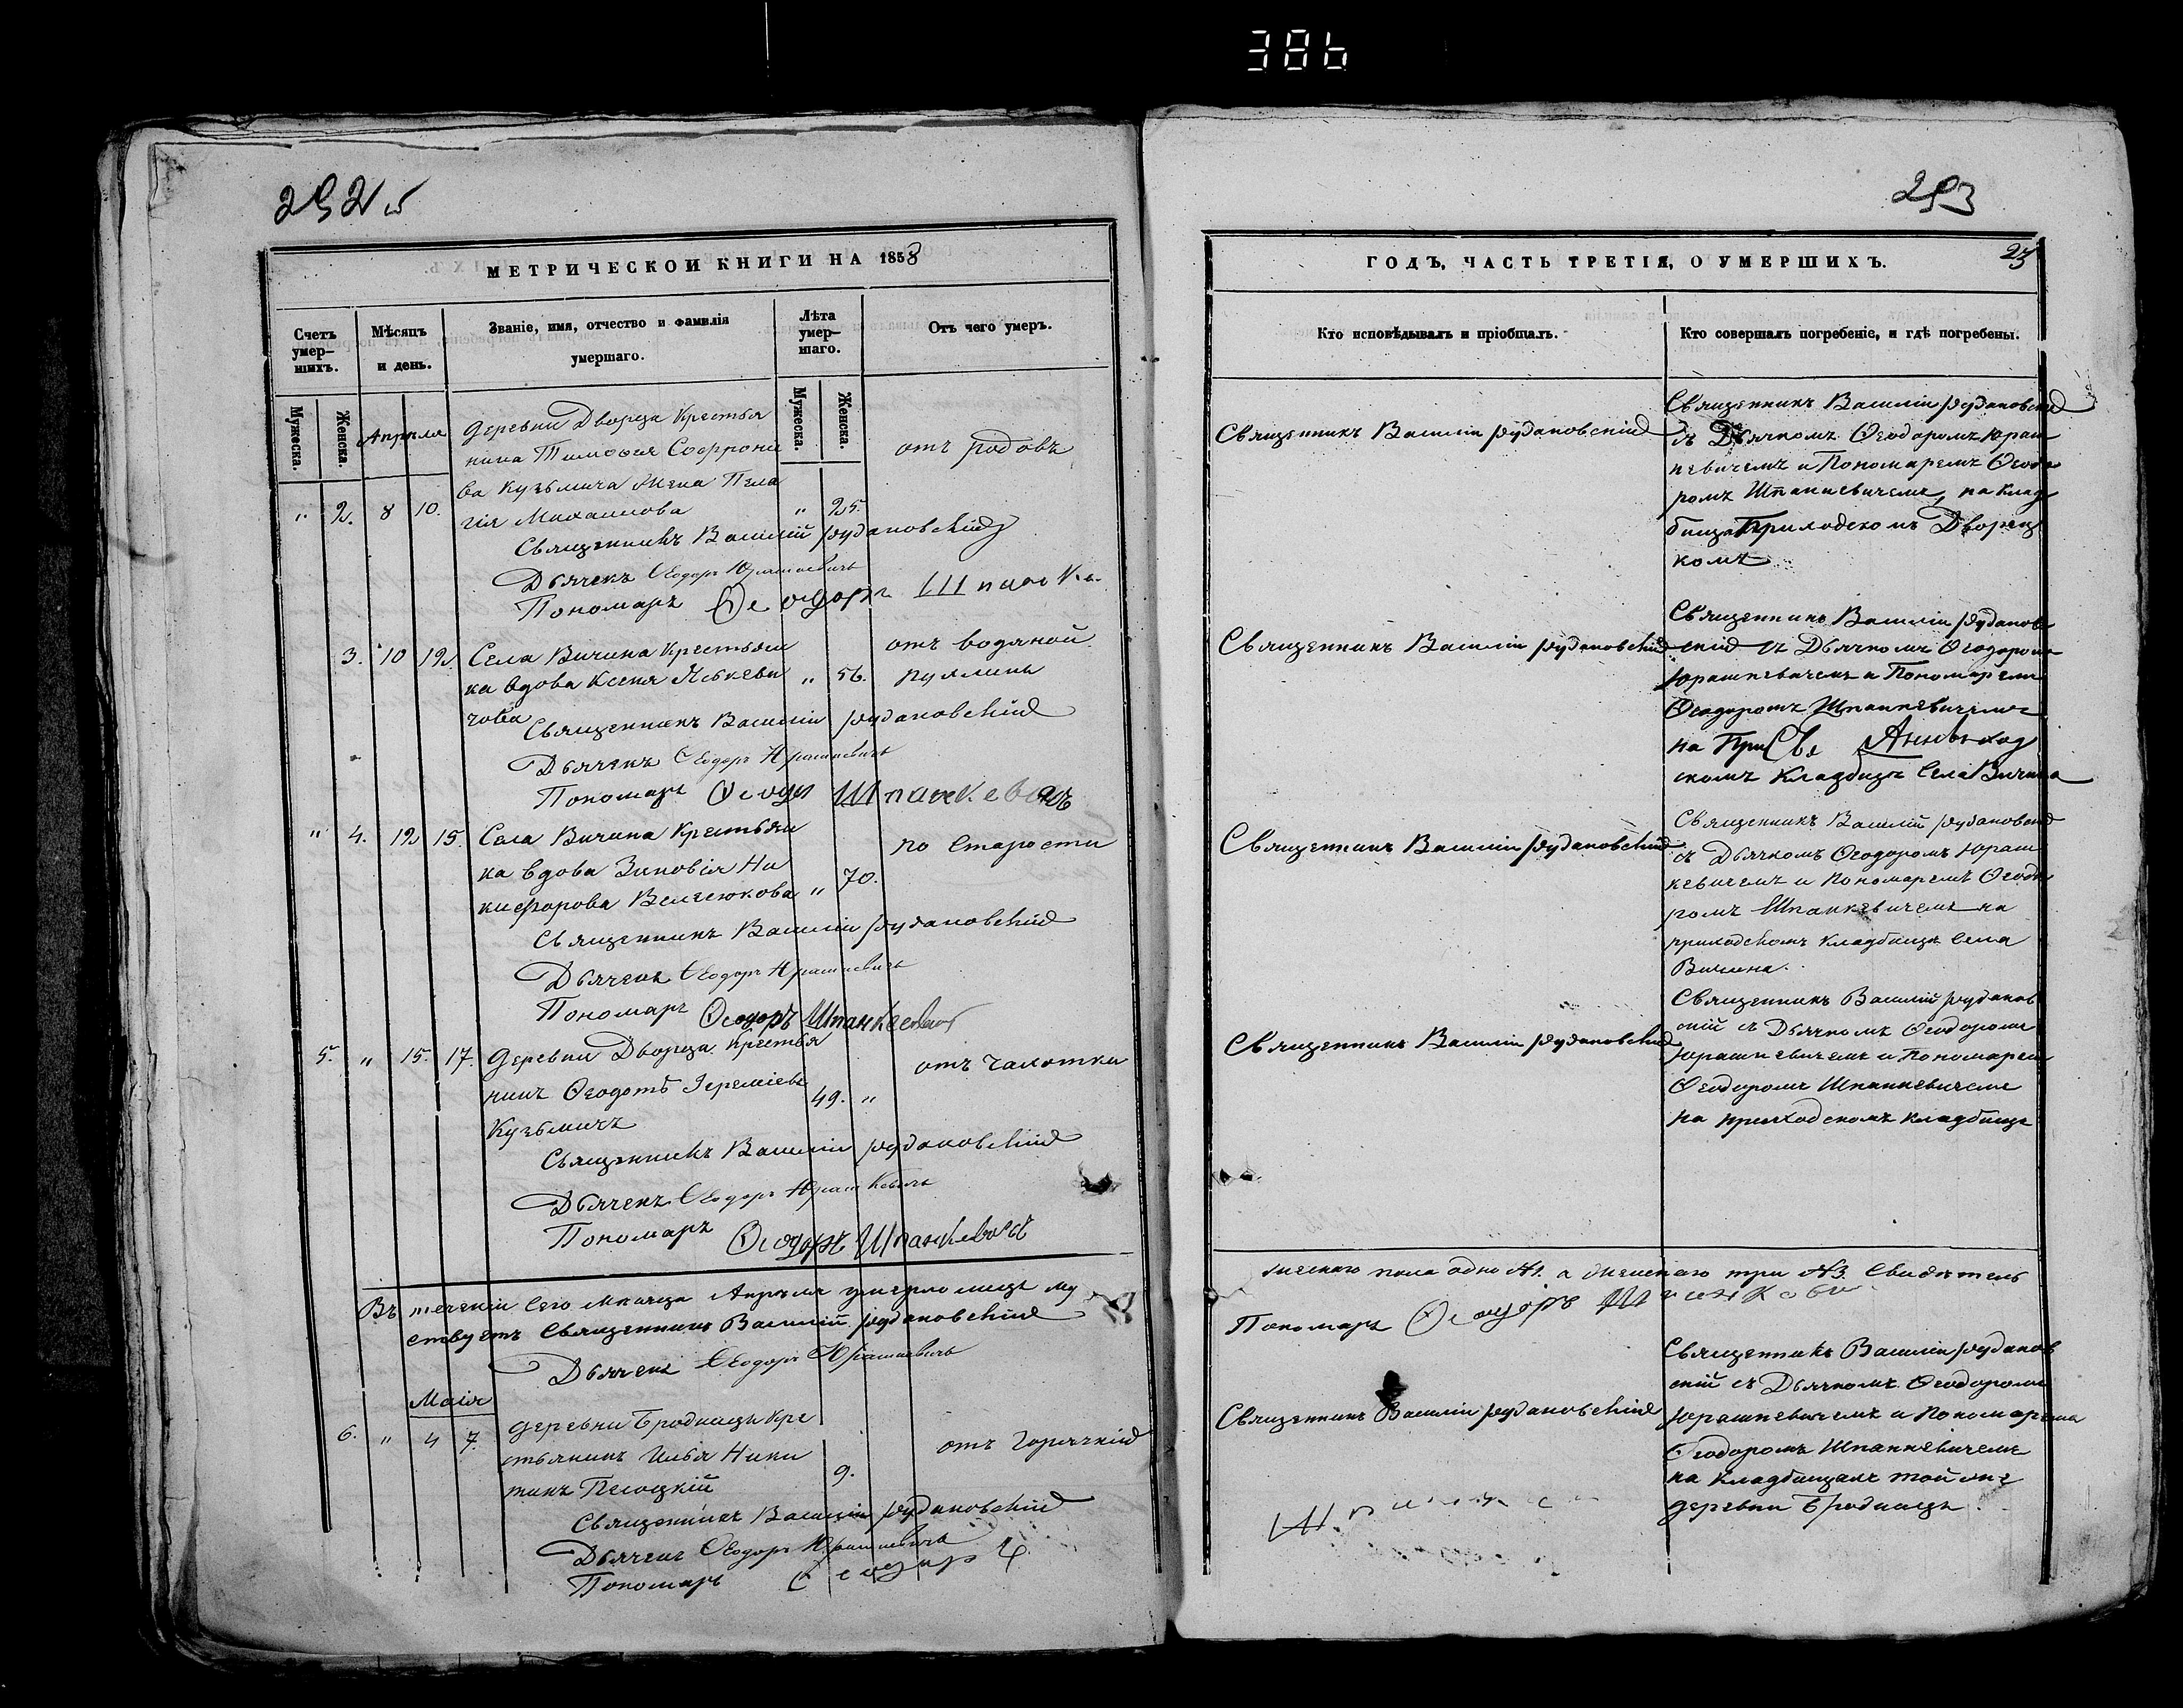 386
МЕТРИЧЕСКОЙ КНИГИ НА 1858
Счетъ умер-шихъ.
Мѣсяцъ и день.
Званіе, имя, отчество и фамилія умершаго.
Лѣта умер-шаго.
Отъ чего умеръ.
Мужеска.
Женска.
Мужеска.
Женска.
Апрѣля
деревни Дворца Крестья
нина Тимофея Софрони
ва Кузьмича жена Пела
" 2. 8 10. гія Михаилова " 25. отъ родовъ
Священникъ Василій Рудановскій
Дьячекъ Ѳеодоръ Юрашкевичъ
Пономарь Ѳеодоръ
3. 10 12. Села Вичина Крестьян отъ водяной
ка вдова Ксенія " 56.
чова
Священникъ Василій Рудановскій
Дьячекъ Ѳеодоръ Юрашкевичъ
Пономарь Ѳеодоръ Шпанкевичъ
" 4. 12 15. Села Вичина Крестьян по старости
ка вдова Зиновія Ни
кифорова " 70.
Священникъ Василій Рудановскій
Дьячекъ Ѳеодоръ Юрашкевичъ
Пономарь Ѳеодоръ Шпанкевичъ
5. " 15. 17. деревни Дворца Крестья отъ чахотки
нинъ Ѳеодотъ Іереміевъ 49. "
Кузьмичъ
Священникъ Василій Рудановскій
Дьячекъ Ѳеодоръ Юрашкевичъ
Пономарь Ѳеодоръ Шпанкевичъ
Въ теченіи сего мѣсяца Апрѣля умерло лицъ му
ствуетъ Священникъ Василій Рудановскій
Дьячекъ Ѳеодоръ Юрашкевичъ
Маія
6. " 4 7. деревни Бродницы Кре
стьянинъ Илья Ники 9. отъ горячкій
тинъ
Священникъ Василій Рудановскій
Дьячекъ Ѳеодоръ Юрашкевичъ
Пономарь Ѳеодоръ
293
ГОДЪ, ЧАСТЬ ТРЕТІЯ, О УМЕРШИХЪ.
Кто исповѣдывалъ и пріобщалъ.
Кто совершалъ погребеніе, и гдѣ погребены.
Священникъ Василій Рудановскій
Священникъ Василій Рудановскій
съ Дьячкомъ Ѳеодоромъ Юраш
кевичемъ и Пономаремъ Ѳеодо
ромъ Шпанкевичемъ, на клад
бищѣ Приходскомъ Дворец
комъ
Священникъ Василій Рудановскій
Священникъ Василій Руданов
скій съ Дьячкомъ Ѳеодоромъ
Юрашкевичемъ и Пономаремъ
Ѳеодоромъ Шпанкевичемъ
на При
скомъ кладбищѣ Села Вичина
Священникъ Василій Рудановскій
Священникъ Василій Рудановскій
съ Дьячкомъ Ѳеодоромъ Юраш
кевичемъ и Пономаремъ Ѳеодо
ромъ Шпанкевичемъ на
приходскомъ кладбищѣ Села
Вичина.
Священникъ Василій Рудановскій
Священникъ Василій Руданов
скій съ Дьячкомъ Ѳеодоромъ
Юрашкевичемъ и Пономаремъ
Ѳеодоромъ Шпанкевичемъ
на приходскомъ кладбищѣ
жескаго пола одно №1. а женскаго три №3. Свидѣтель
Пономарь Ѳеодоръ
Священникъ Василій Рудановскій
Священникъ Василій Руданов
скій съ Дьячкомъ Ѳеодоромъ
Юрашкевичемъ и Пономаремъ
Ѳеодоромъ Шпанкевичемъ
на кладбищахъ той же
деревни Бродницы.